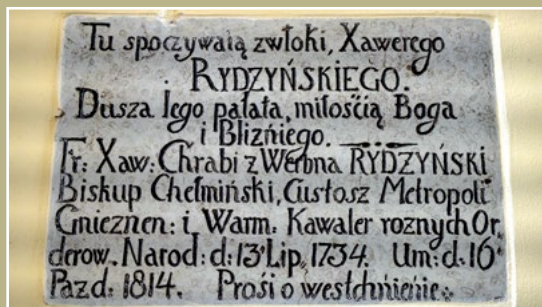 Tu spoczywaią zwłoki, Xawerego
RYDZYŃSKIEGO.
Dusza Iego pałata, miłością Boga
i Blizńiego.
Fr: Xaw: Chrabi z Werbna RYDZYŃSKI
Biskup Chełmiński, Custosz Metropoli
Gnieznen: i Warm: Kawaler roznych Or,
derow. Narod: d: 13 Lip. 1734. Um: d: 16
Pazd: 1814. Prosi o westchnienie: